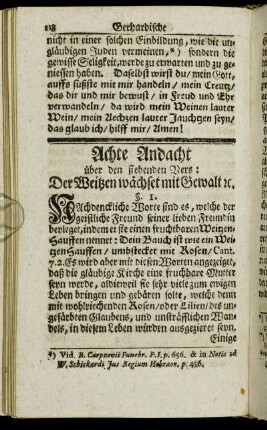 118 Gerhardische
nicht in einer solchen Einbildung, wie die un-
gläubigen Juden vermeinen,*) sondern die
gewisse Seligkeit, werde zu erwarten und zu ge-
niessen haben. Daselbst wirst du/ mein Gott,
auffs süßste mit mir handeln/ mein Creutz/
das dir und mir bewust/ in Freud und Ehr
verwandeln/ da wird mein Weinen lauter
Wein/ mein Aechzen lauter Jauchtzen seyn/
das glaub ich/ hilff mir/ Amen!
Achte Andacht
über den siebenden Vers:
Der Weitzen wächset mit Gewalt ꝛc.
§. 1.
Nachdenckliche Worte sind es, welche der
geistliche Freund seiner lieben Freundin
beyleget, indem er sie einen fruchtbaren Weitzen-
Hauffen nennet: Dein Bauch ist wie ein Wei-
tzen Hauffen/ umbsteckt mit Rosen/ Cant.
7.2. Es wird aber mit diesen Worten angezeiget,
daß die gläubige Kirche eine fruchtbare Mutter
seyn werde, aldieweil sie sehr viele zum ewigen
Leben bringen und gebären solte, welche denn
mit wohlriechenden Rosen/ oder Lilien/ des un-
gefärbten Glaubens, und unsträfflichen Wan-
dels, in diesem Leben würden ausgezieret seyn.
Einige
*) Vid. B. Carpzovii Funebr. P. I, p. 656. & in Notis ad
W. Schickardi Jus Regium Hebræor. p. 456.